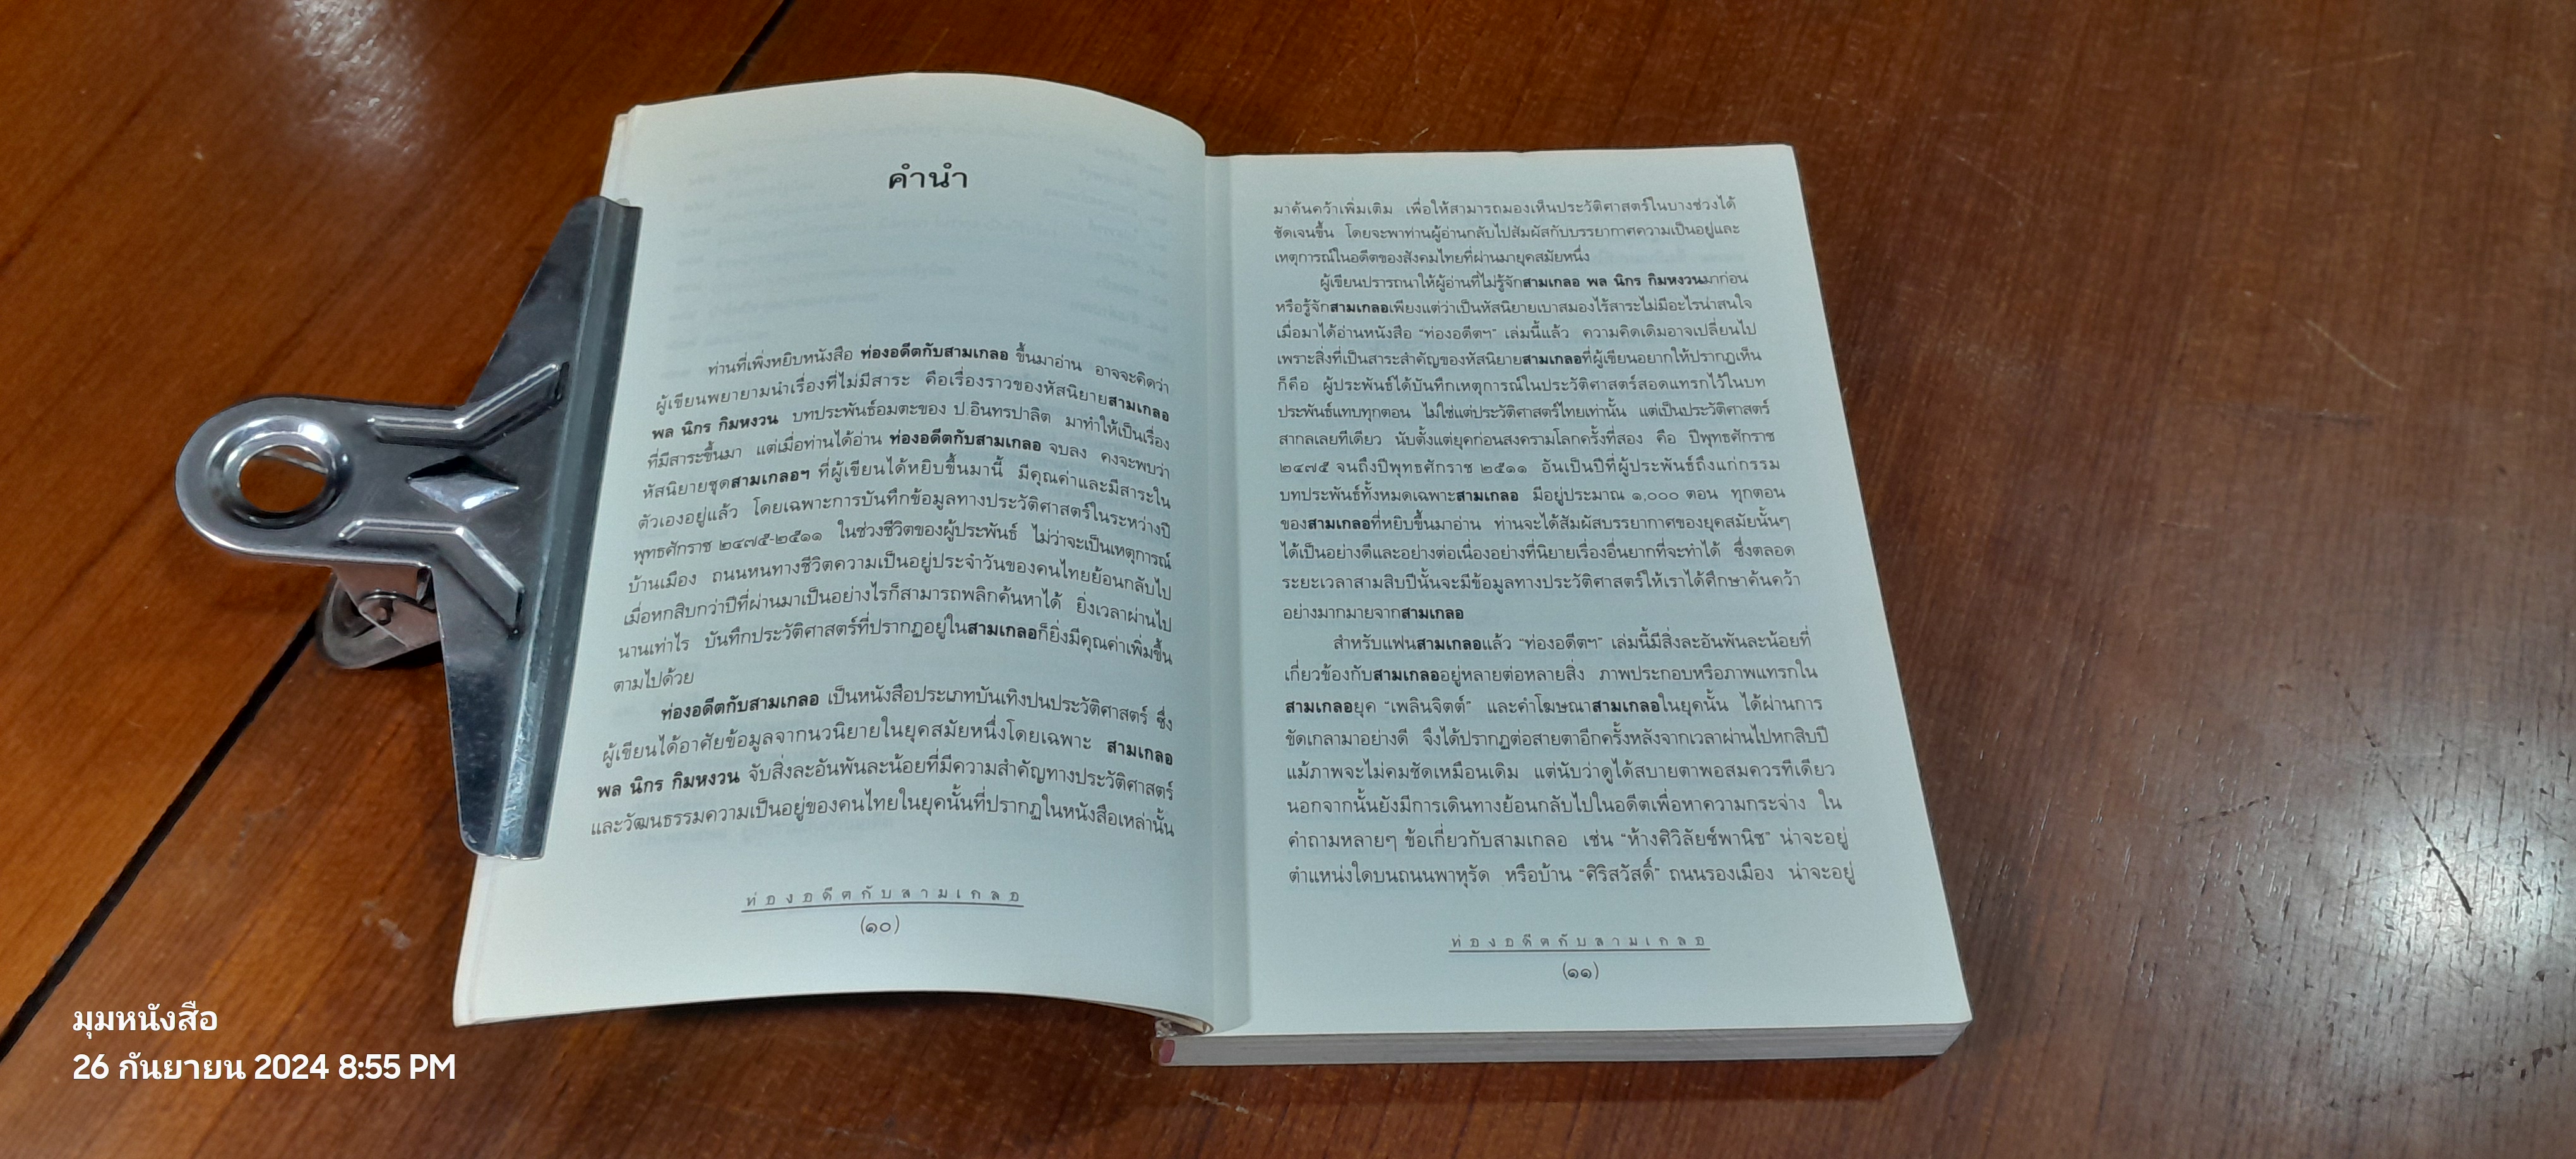 คำนำ
ท่านที่เพิ่งหยิบหนังสือ ท่องอดีตกับสามเกลอ ขึ้นมาอ่าน อาจจะคิดว่า
ผู้เขียนพยายามนำเรื่องที่ไม่มีสาระ คือเรื่องราวของหัสนิยายสามเกลอ
พล นิกร กิมหงวน บทประพันธ์อมตะของ ป.อินทรปาลิต มาทำให้เป็นเรื่อง
ที่มีสาระขึ้นมา แต่เมื่อท่านได้อ่าน ท่องอดีตกับสามเกลอ จบลง คงจะพบว่า
หัสนิยายชุดสามเกลอฯ ที่ผู้เขียนได้หยิบขึ้นมานี้ มีคุณค่าและมีสาระใน
ตัวเองอยู่แล้ว โดยเฉพาะการบันทึกข้อมูลทางประวัติศาสตร์ในระหว่างปี
พุทธศักราช ๒๔๗๕-๒๕๑๑ ในช่วงชีวิตของผู้ประพันธ์ ไม่ว่าจะเป็นเหตุการณ์
บ้านเมือง ถนนหนทางชีวิตความเป็นอยู่ประจำวันของคนไทยย้อนกลับไป
เมื่อหกสิบกว่าปีที่ผ่านมาเป็นอย่างไรก็สามารถพลิกค้นหาได้ ยิ่งเวลาผ่านไป
นานเท่าไร บันทึกประวัติศาสตร์ที่ปรากฏอยู่ในสามเกลอก็ยิ่งมีคุณค่าเพิ่มขึ้น
ตามไปด้วย
ท่องอดีตกับสามเกลอ เป็นหนังสือประเภทบันเทิงปนประวัติศาสตร์ ซึ่ง
ผู้เขียนได้อาศัยข้อมูลจากนวนิยายในยุคสมัยหนึ่งโดยเฉพาะ สามเกลอ
พล นิกร กิมหงวน จับสิ่งละอันพันละน้อยที่มีความสำคัญทางประวัติศาสตร์
และวัฒนธรรมความเป็นอยู่ของคนไทยในยุคนั้นที่ปรากฏในหนังสือเหล่านั้น
ท่องอดีตกับสามเกลอ
(๑๐)
มาค้นคว้าเพิ่มเติม เพื่อให้สามารถมองเห็นประวัติศาสตร์ในบางช่วงได้
ชัดเจนขึ้น โดยจะพาท่านผู้อ่านกลับไปสัมผัสกับบรรยากาศความเป็นอยู่และ
เหตุการณ์ในอดีตของสังคมไทยที่ผ่านมายุคสมัยหนึ่ง
ผู้เขียนปรารถนาให้ผู้อ่านที่ไม่รู้จักสามเกลอ พล นิกร กิมหงวนมาก่อน
หรือรู้จักสามเกลอเพียงแต่ว่าเป็นหัสนิยายเบาสมองไร้สาระไม่มีอะไรน่าสนใจ
เมื่อมาได้อ่านหนังสือ “ท่องอดีตฯ” เล่มนี้แล้ว ความคิดเดิมอาจเปลี่ยนไป
เพราะสิ่งที่เป็นสาระสำคัญของหัสนิยายสามเกลอที่ผู้เขียนอยากให้ปรากฏเห็น
ก็คือ ผู้ประพันธ์ได้บันทึกเหตุการณ์ในประวัติศาสตร์สอดแทรกไว้ในบท
ประพันธ์แทบทุกตอน ไม่ใช่แต่ประวัติศาสตร์ไทยเท่านั้น แต่เป็นประวัติศาสตร์
สากลเลยทีเดียว นับตั้งแต่ยุคก่อนสงครามโลกครั้งที่สอง คือ ปีพุทธศักราช
๒๔๗๕ จนถึงปีพุทธศักราช ๒๕๑๑ อันเป็นปีที่ผู้ประพันธ์ถึงแก่กรรม
บทประพันธ์ทั้งหมดเฉพาะสามเกลอ มีอยู่ประมาณ ๑,๐๐๐ ตอน ทุกตอน
ของสามเกลอที่หยิบขึ้นมาอ่าน ท่านจะได้สัมผัสบรรยากาศของยุคสมัยนั้นๆ
ได้เป็นอย่างดีและอย่างต่อเนื่องอย่างที่นิยายเรื่องอื่นยากที่จะทำได้ ซึ่งตลอด
ระยะเวลาสามสิบปีนั้นจะมีข้อมูลทางประวัติศาสตร์ให้เราได้ศึกษาค้นคว้า
อย่างมากมายจากสามเกลอ
สำหรับแฟนสามเกลอแล้ว “ท่องอดีตฯ” เล่มนี้มีสิ่งละอันพันละน้อยที่
เกี่ยวข้องกับสามเกลออยู่หลายต่อหลายสิ่ง ภาพประกอบหรือภาพแทรกใน
สามเกลอยุค “เพลินจิตต์” และคำโฆษณาสามเกลอในยุคนั้น ได้ผ่านการ
ขัดเกลามาอย่างดี จึงได้ปรากฏต่อสายตาอีกครั้งหลังจากเวลาผ่านไปหกสิบปี
แม้ภาพจะไม่คมชัดเหมือนเดิม แต่นับว่าดูได้สบายตาพอสมควรทีเดียว
นอกจากนั้นยังมีการเดินทางย้อนกลับไปในอดีตเพื่อหาความกระจ่าง ใน
คำถามหลายๆ ข้อเกี่ยวกับสามเกลอ เช่น “ห้างศิวิลัยซ์พานิช” น่าจะอยู่
ตำแหน่งใดบนถนนพาหุรัด หรือบ้าน “ศิริสวัสดิ์” ถนนรองเมือง น่าจะอยู่
ท่องอดีตกับสามเกลอ
(๑๑)
มุมหนังสือ
26 กันยายน 2024 8:55 PM